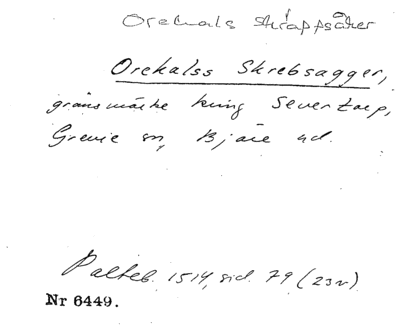 Orekals skrappsåker
Orekalss Skrebsagger,
gränsmärke kring Severtorp,
Grevie sn, Bjäre hd.
Palteb. 1514, sid. 79 (23v)
Nr 6449.